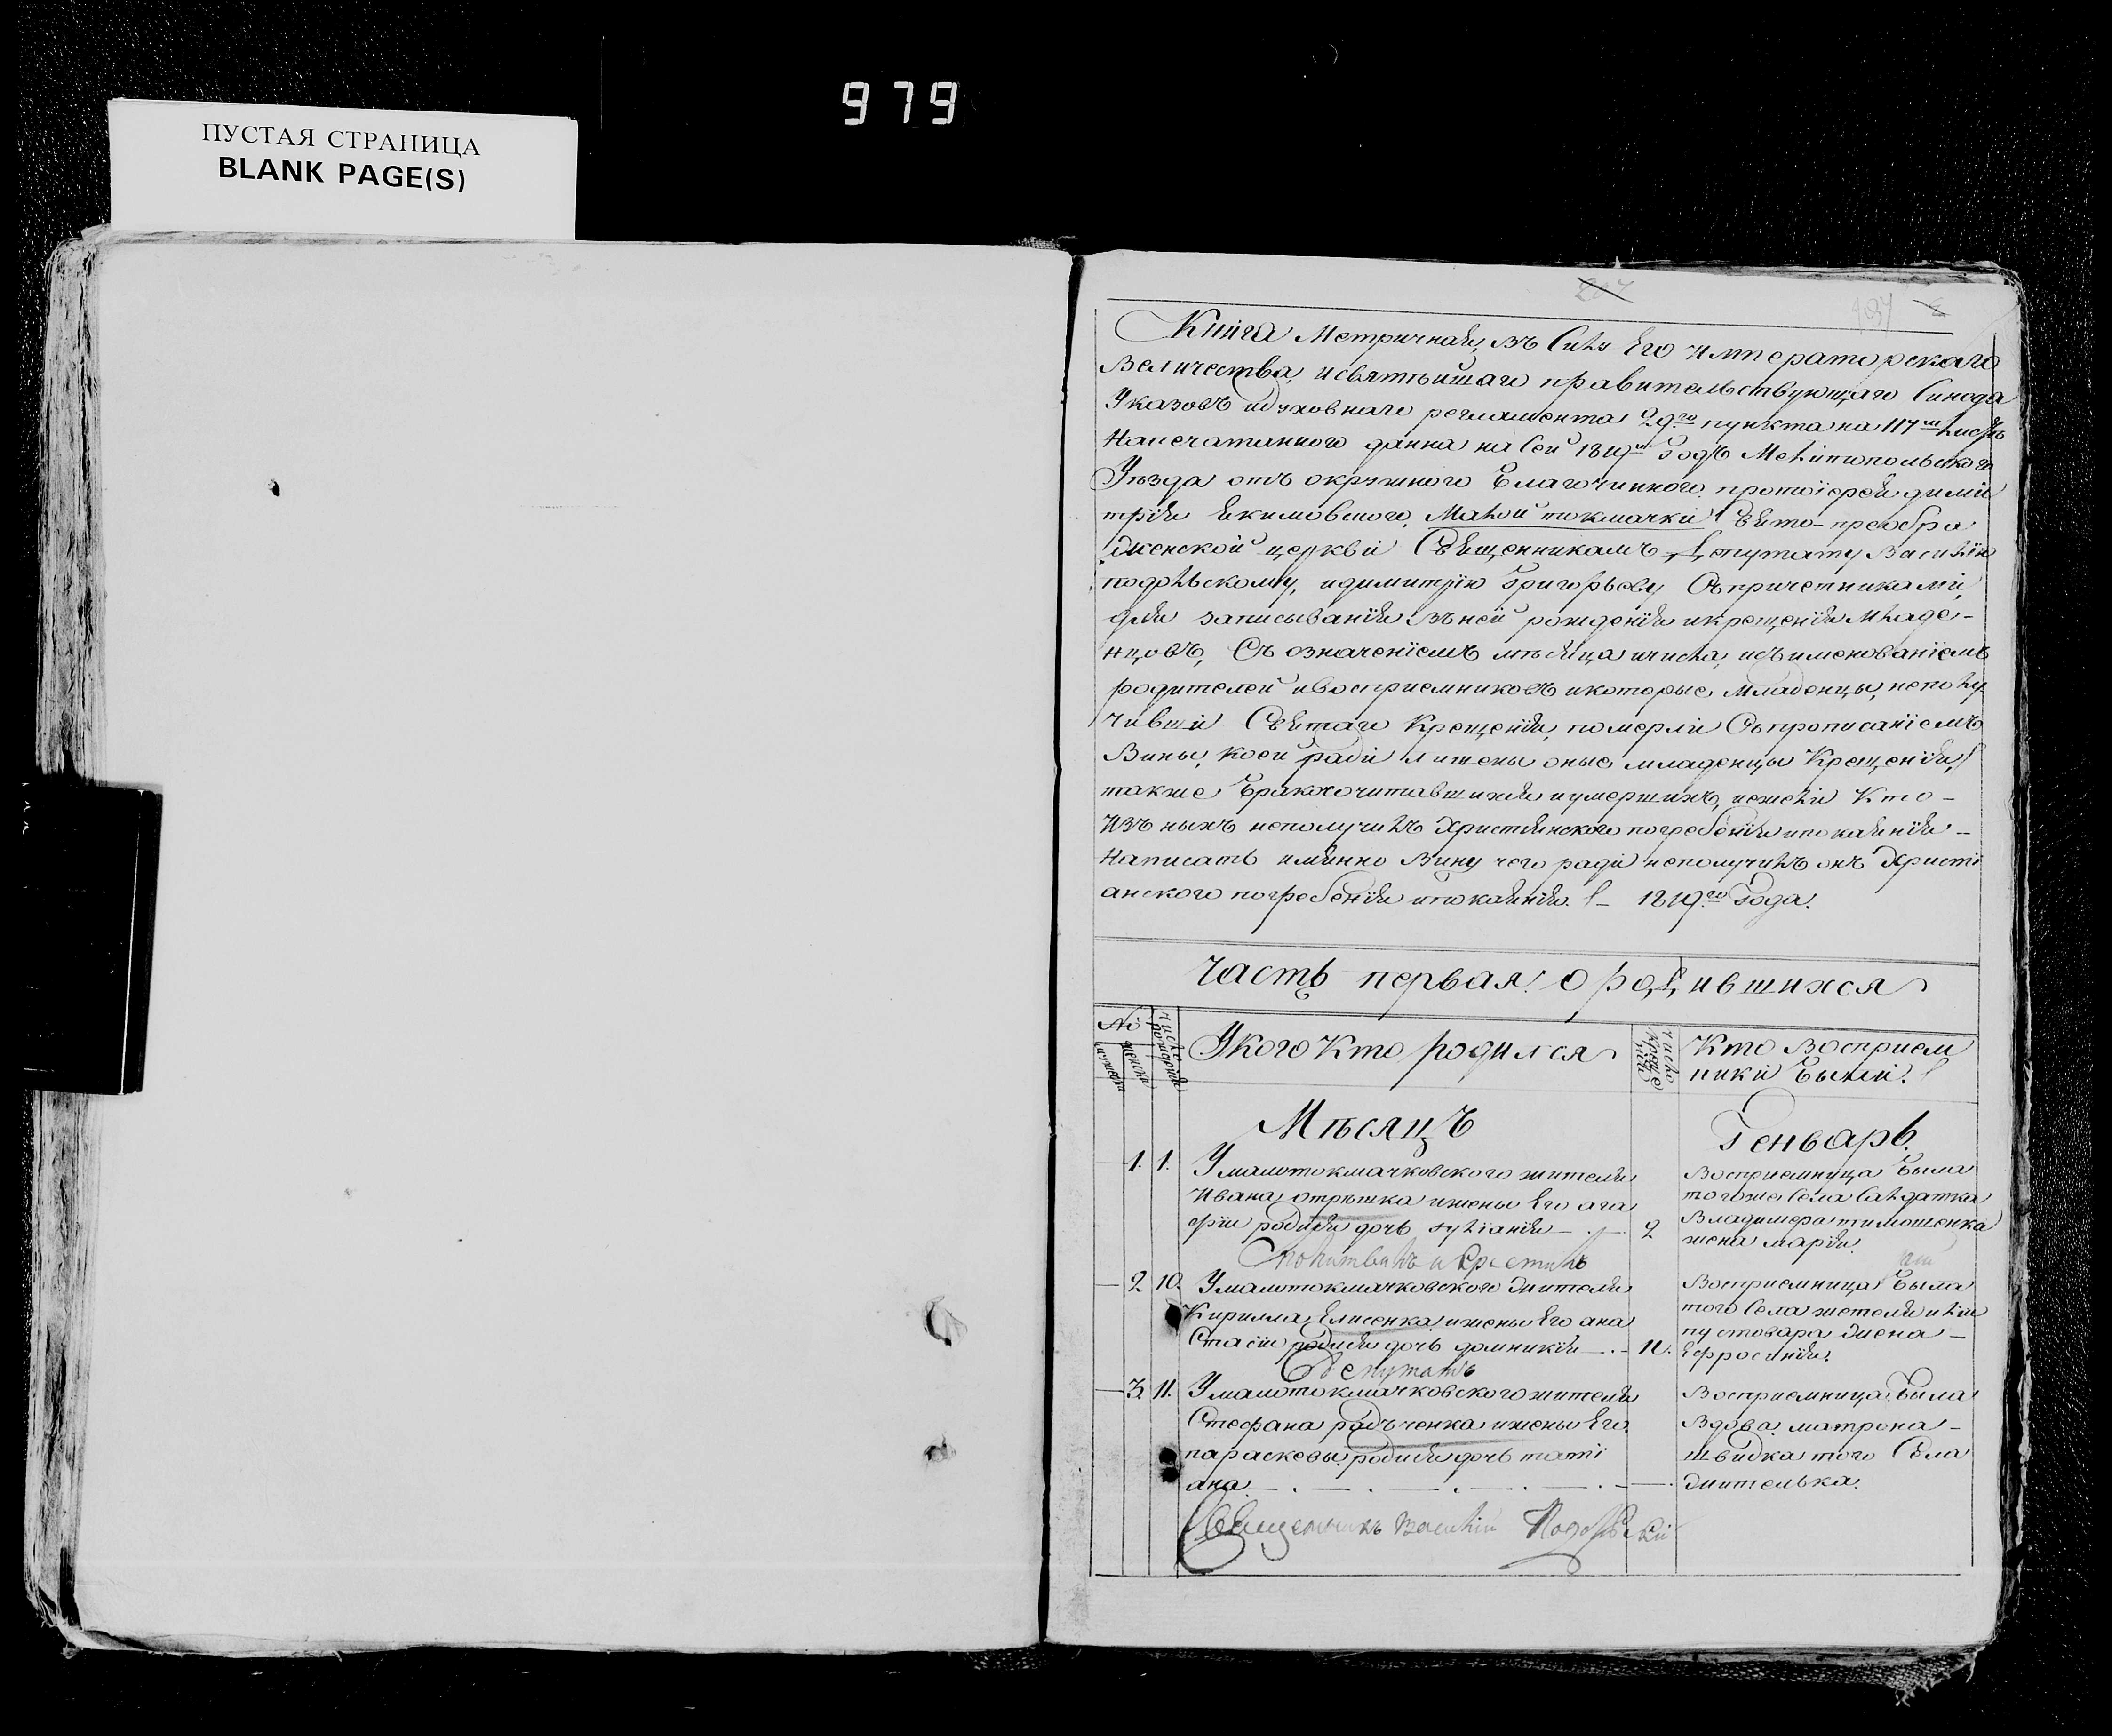 979
ПУСТАЯ СТРАНИЦА
BLANK PAGE(S)
Книга Метричная, въ Силу Его Императорскаго
Величества, и святѣйшаго правительствующаго Синода
Указовъ и духовнаго регламента 29го пункта на 117м листѣ
Напечатанного данна на Сей 1819й Годъ Мелитопольского
Уѣзда отъ окружного Благочинного протоіерея дими
трія Екимовского, Малой токмачки Свято-преобра
женской церкви Священникамъ Депутату Василію
подольскому, и димитрію Григорьеву Съ причетниками,
для записыванія въ ней рожденія и крещенія Младе-
нцовъ, Съ означеніемъ мѣсяца и числа, и съ именованіемъ
родителей и восприемниковъ и которые младенцы, неполу
чивши Святаго Крещенія, померли Съ прописаніемъ
Вины, коей ради лишены оные младенцы Крещенія,
также бракосочитавшихся и умершихъ, и ежели Кто-
Изъ ныхъ неполучилъ Христіянского погребенія и покаянія-
Написать имянно Вину чего ради неполучилъ онъ Христі
анского погребенія и покаянія. 1819го Года.
Часть первая о родившихся
№
мужеска
женска
число рожденія
У кого Кто родился
число крещенія
Кто Восприем
ники были.
Мѣсяцъ
Генварь.
1. 1. У малотокмачковского жителя
Ивана отрѣшка и жены Его ага
фіи родися дочь иуліанія 2
Восприемница была
того же Села Салдатка
Владимера тимошенка
жена марія.
молитвилъ и крестилъ
2 10. У малотокмачковского жителя
Кирилла Елисенка и жены Его ана
стасіи родися дочь домникія 11.
Восприемница была
того Села жителя иліи
пустовара жена -
Ефросинія.
Депутатъ
3. 11. У малотокмачковского жителя
Стефана радъченка и жены Его
параскевы родися дочь таті
ана
Восприемница была
Вдова матрона -
швидка того Села
жителька.
Священникъ Василій Подольскій